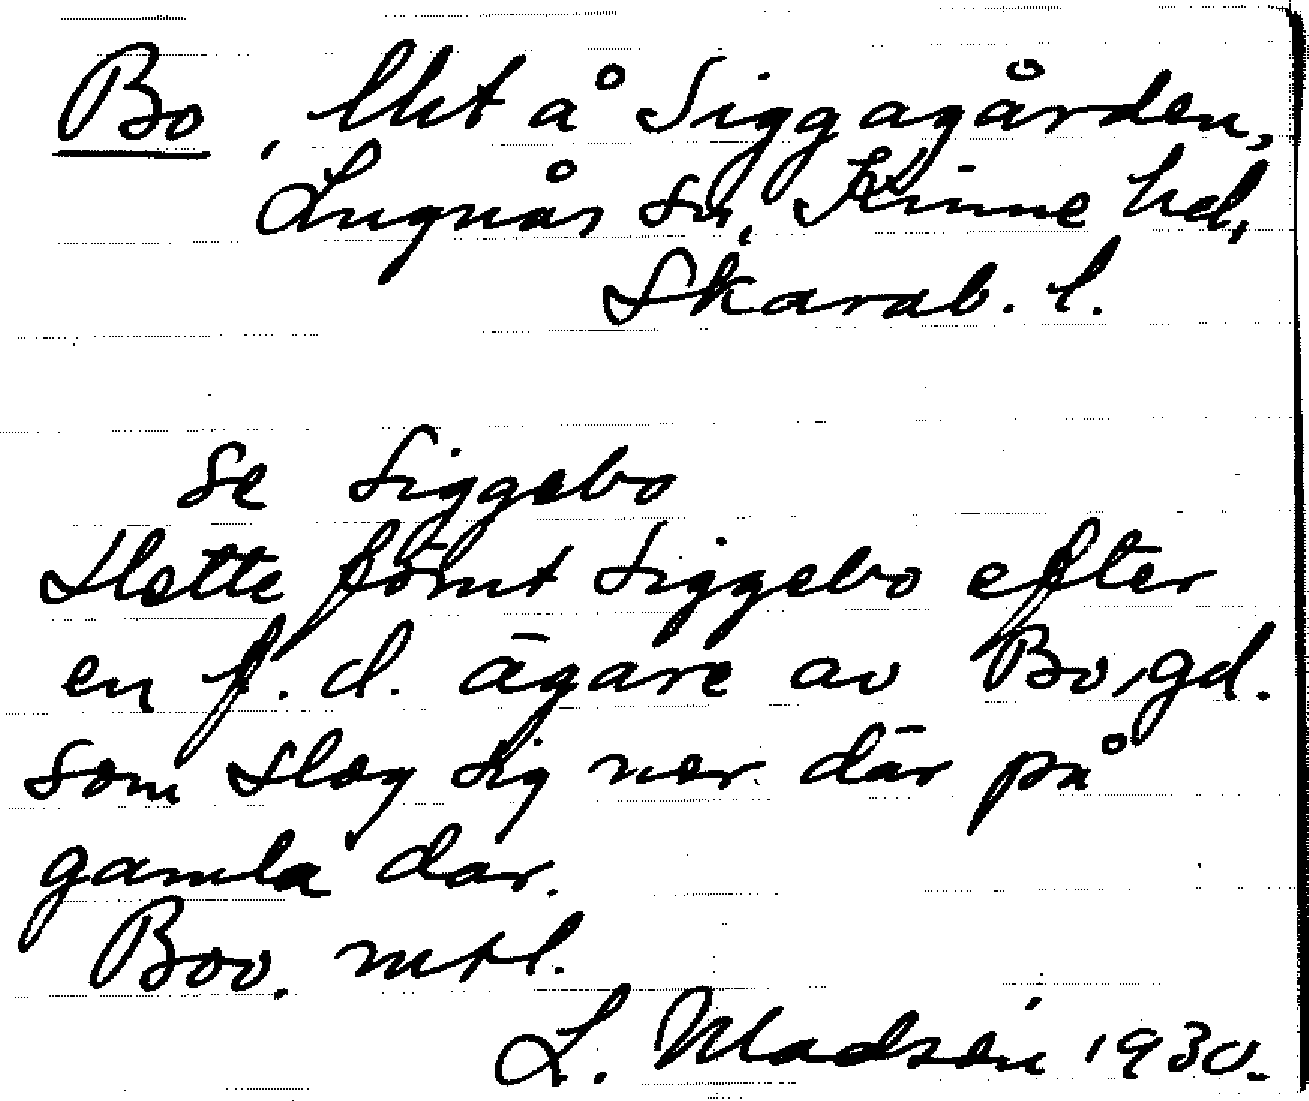 Bo, lht å Siggagården,
Lugnås sn, Kinne hd,
Skarab. l.
Se Siggebo
Hette förut Siggebo efter
en f. d. ägare av Bo, gd.
som slog sig ner där på
gamla dar.
Boo. mtl.
L. Madsén 1930.